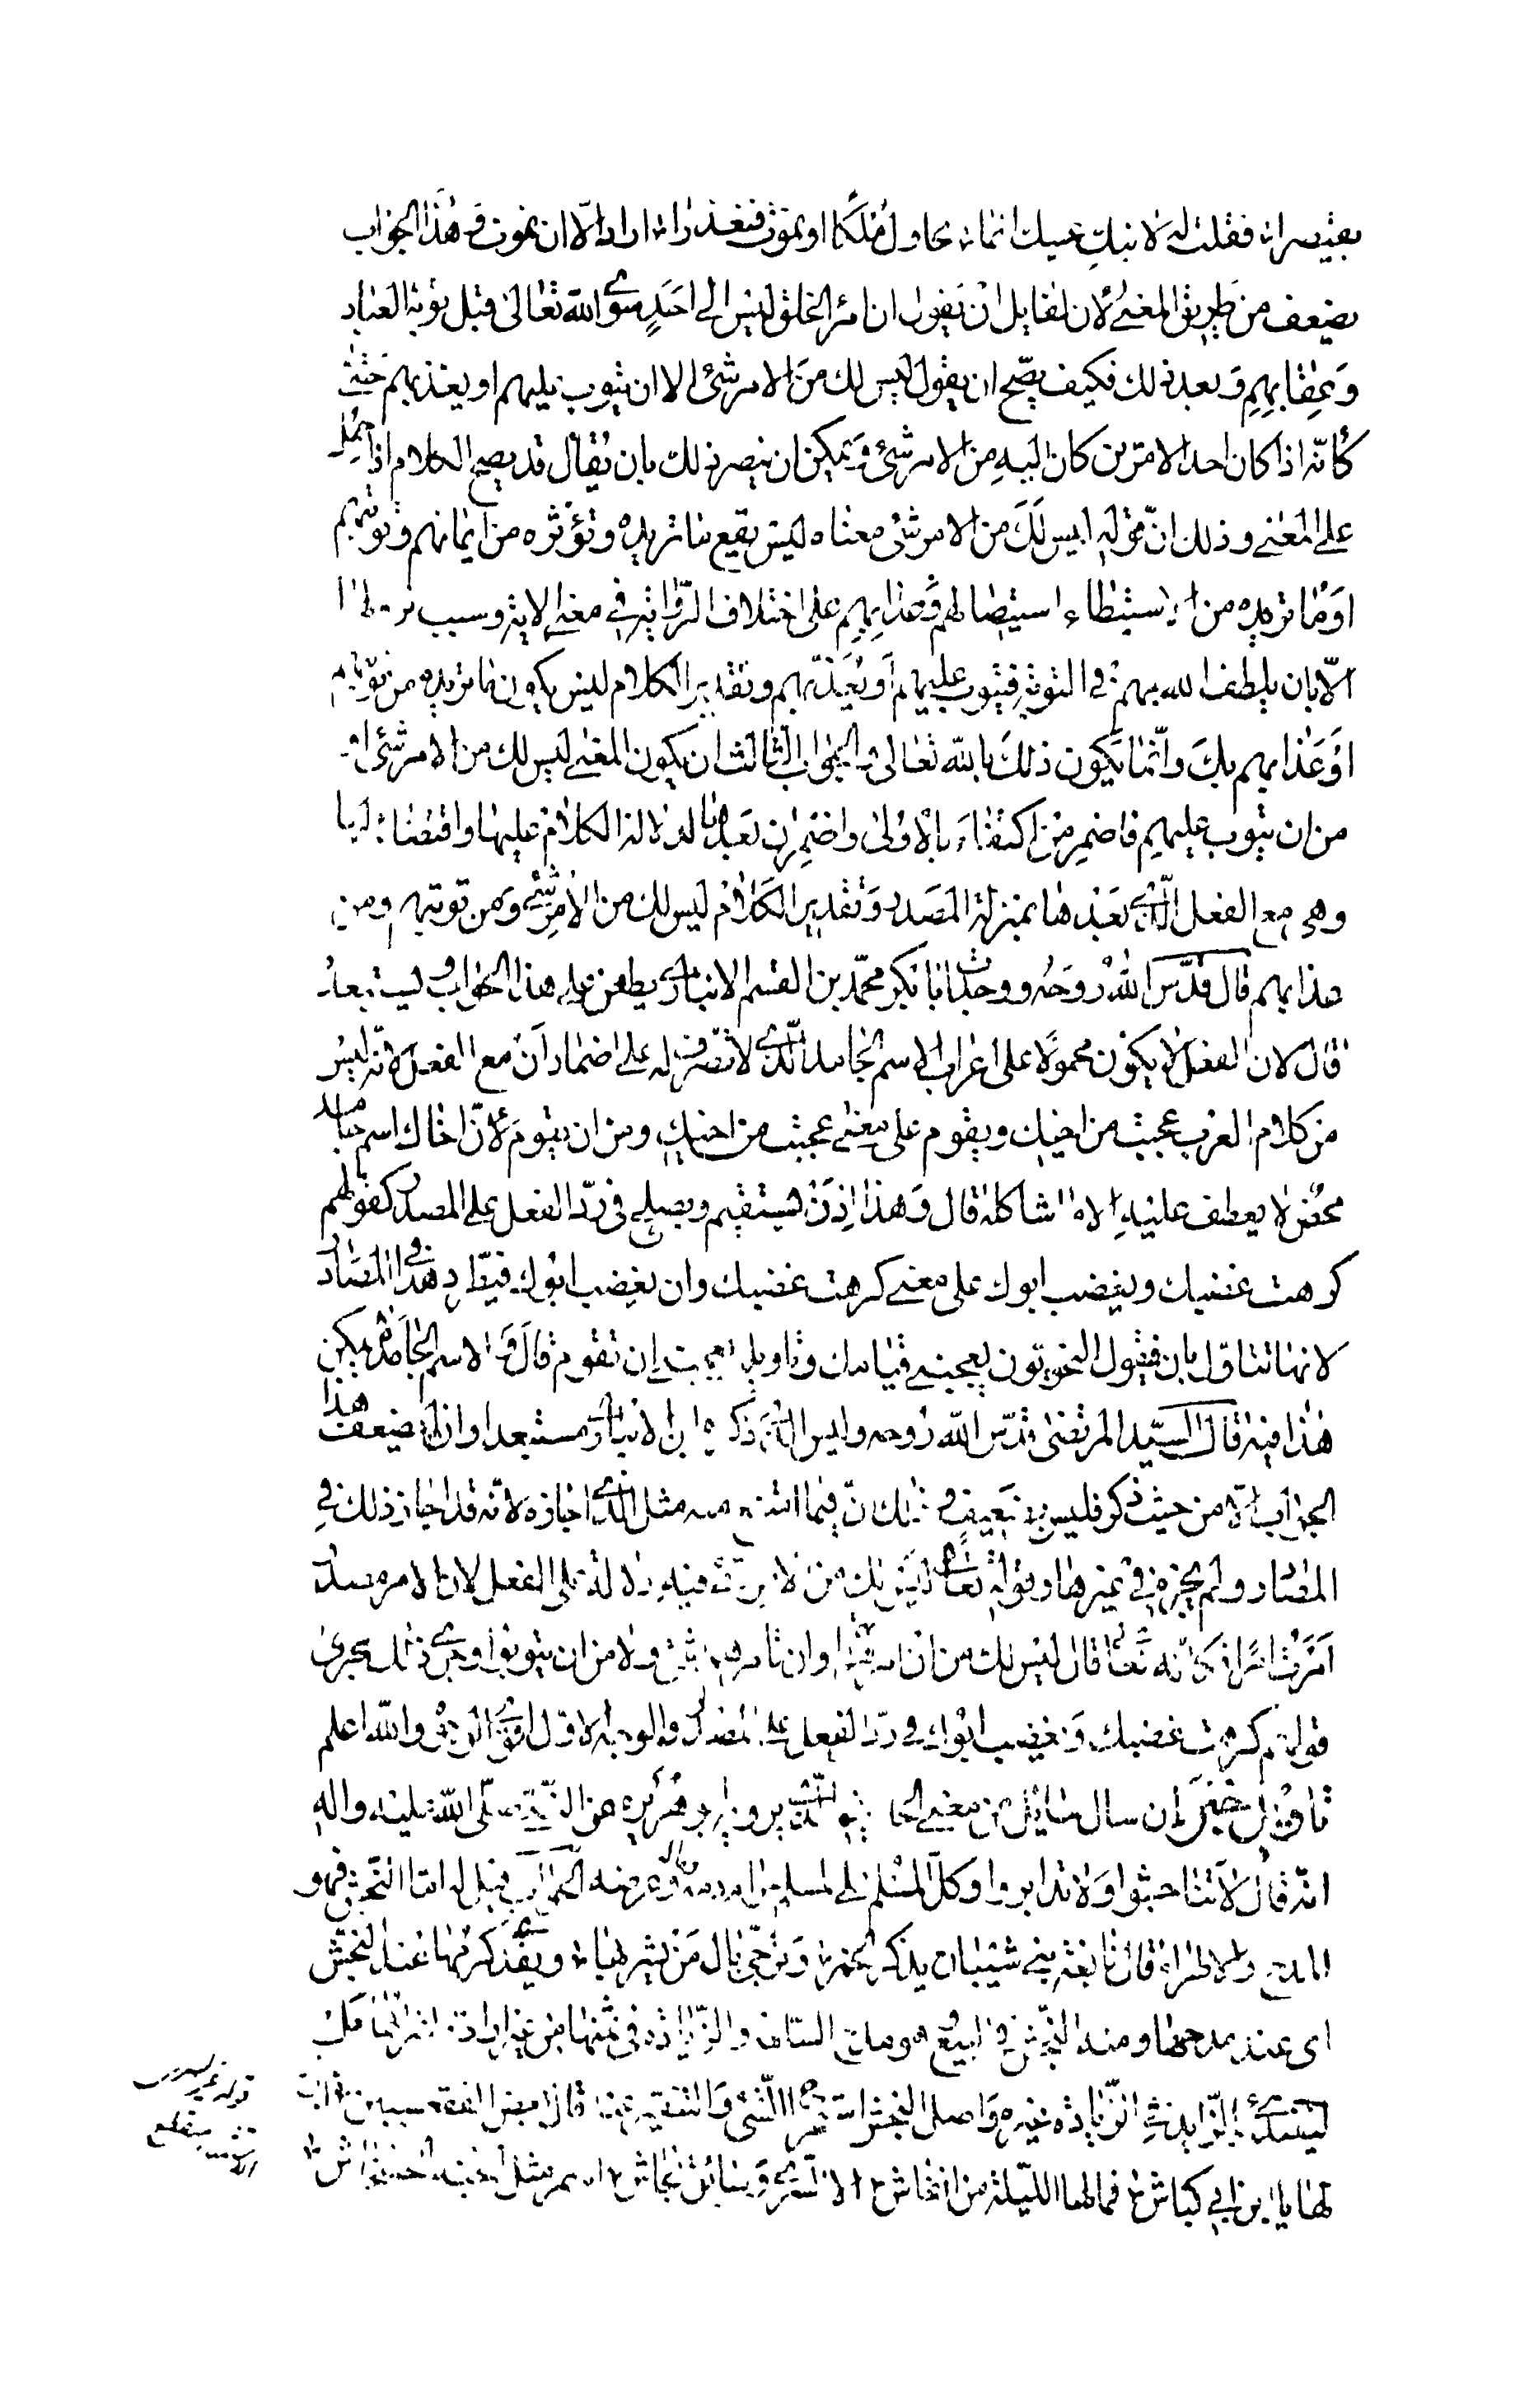 بقيصرا فقلت له لا تبك عينك انما نحاول ملكا او نموت فنعذرا اراد الا ان نموت و هذا الجواب
يضعف من طريق المعنى لان لقايل ان يقول ان امر الخلق ليس الى احد سوى الله تعالى قبل توبة العباد
وعقابهم وبعد ذلك فكيف يصح ان يقول ليس لك من الامر شئ الا ان يتوب عليهم او يعذبهم حتى
كانه اذا كان احد الامرين كان اليه من الامر شئ ويمكن ان ينصر ذلك بان يقال قد يصح الكلام اذا حمل
على المعنى وذلك ان قوله ليس لك من الامر شئ معناه ليس يقع ما تريده وتؤثره من ايمانهم وتوبتهم
او ما تريده من استيصالهم وعذابهم على اختلاف الرواية في معنى الاية وسبب نزولها
الا بان يلطف الله بهم في التوبة فيتوب عليهم او يعذبهم وتقدير الكلام ليس يكون ما تريده من توبتهم
او عذابهم بك وانما يكون ذلك بالله تعالى والجواب الثالث ان يكون المعنى ليس لك من الامر شئ او
من ان يتوب عليهم فاضمر من اكتفاء بالاولى واضمر ان بعدها لدلالة الكلام عليها واقتضائه لها
وهي مع الفعل الذي بعدها بمنزلة المصدر وتقدير الكلام ليس لك من الامر شئ ومن توبتهم ومن
عذابهم قال قدس الله روحه ووجدت ابا بكر محمد بن القسم الانباري يطعن على هذا الجواب و يستبعده
قال لان الفعل لا يكون محمولا على اعراب الاسم الجامد الذي لا تصرف له على اضمار ان مع الفعل لانه ليس
من كلام العرب عجبت من اخيك ويقوم على معنى عجبت من اخيك ومن ان يقوم لان اخاك اسم جامد
محض لا يعطف عليه الا ما شاكله قال وهذا اذن يستقيم ويصلح في رد الفعل على المصدر كقولهم
كرهت غضبك ويغضب ابوك على معنى كرهت غضبك وان يغضب ابوك فيطرد هذا في المصادر
لانها تتاول بان فيقول النحويون يعجبني قيامك وتاويله يعجبني ان تقوم قال و الاسم الجامد يمكن
هذا فيه قال السيد المرتضى قدس الله روحه وليس الذي ذكره ابن الانباري مستبعدا وان لم يضعف هذا
الجواب الا من حيث ذكر فليس بضعيف وذلك ان فيما امتنع منه مثل الذي اجازه لانه قد اجاز ذلك في
المصادر ولم يجزه في غيرها وقوله تعالى ليس لك من الامر شئ فيه دلالة على الفعل لان الامر مصدر
امرت امرا فكانه تعالى قال ليس لك من ان وان تامرهم شئ ولا من ان يتوبوا وجرى ذلك مجرى
قولهم كرهت غضبك ويغضب ابوك في رد الفعل على المصدر والوجه الاول والله اعلم
تاويل خبر ان سال سائل عن معنى الخبر الذي يرويه ابو هريرة عن النبي صلى الله عليه واله
انه قال لا تناجشوا ولا تدابروا وكل المسلم على المسلم حرام دمه وعرضه الجواب قيل له اما النجش فهو
المدح والاطراء قال نابغة بني شيبان يذكر الخمر وترخى بال من يشربها ويفدى كرمها عند النجش
اى عند مدحها ومنه النجش في البيع هو مدح السلعة والزيادة في ثمنها من غير ارادة لشرائها بل
ليقتدى بالزايد في الزيادة غيره واصل النجش استخراج الشئ والتنقير عنه قال بعض الفقعسيين
لها يا ابن ابي كباش فما لها الليلة من انفاش الا السرى وسائق نجاش اسمر مثل الحية الخشخاش